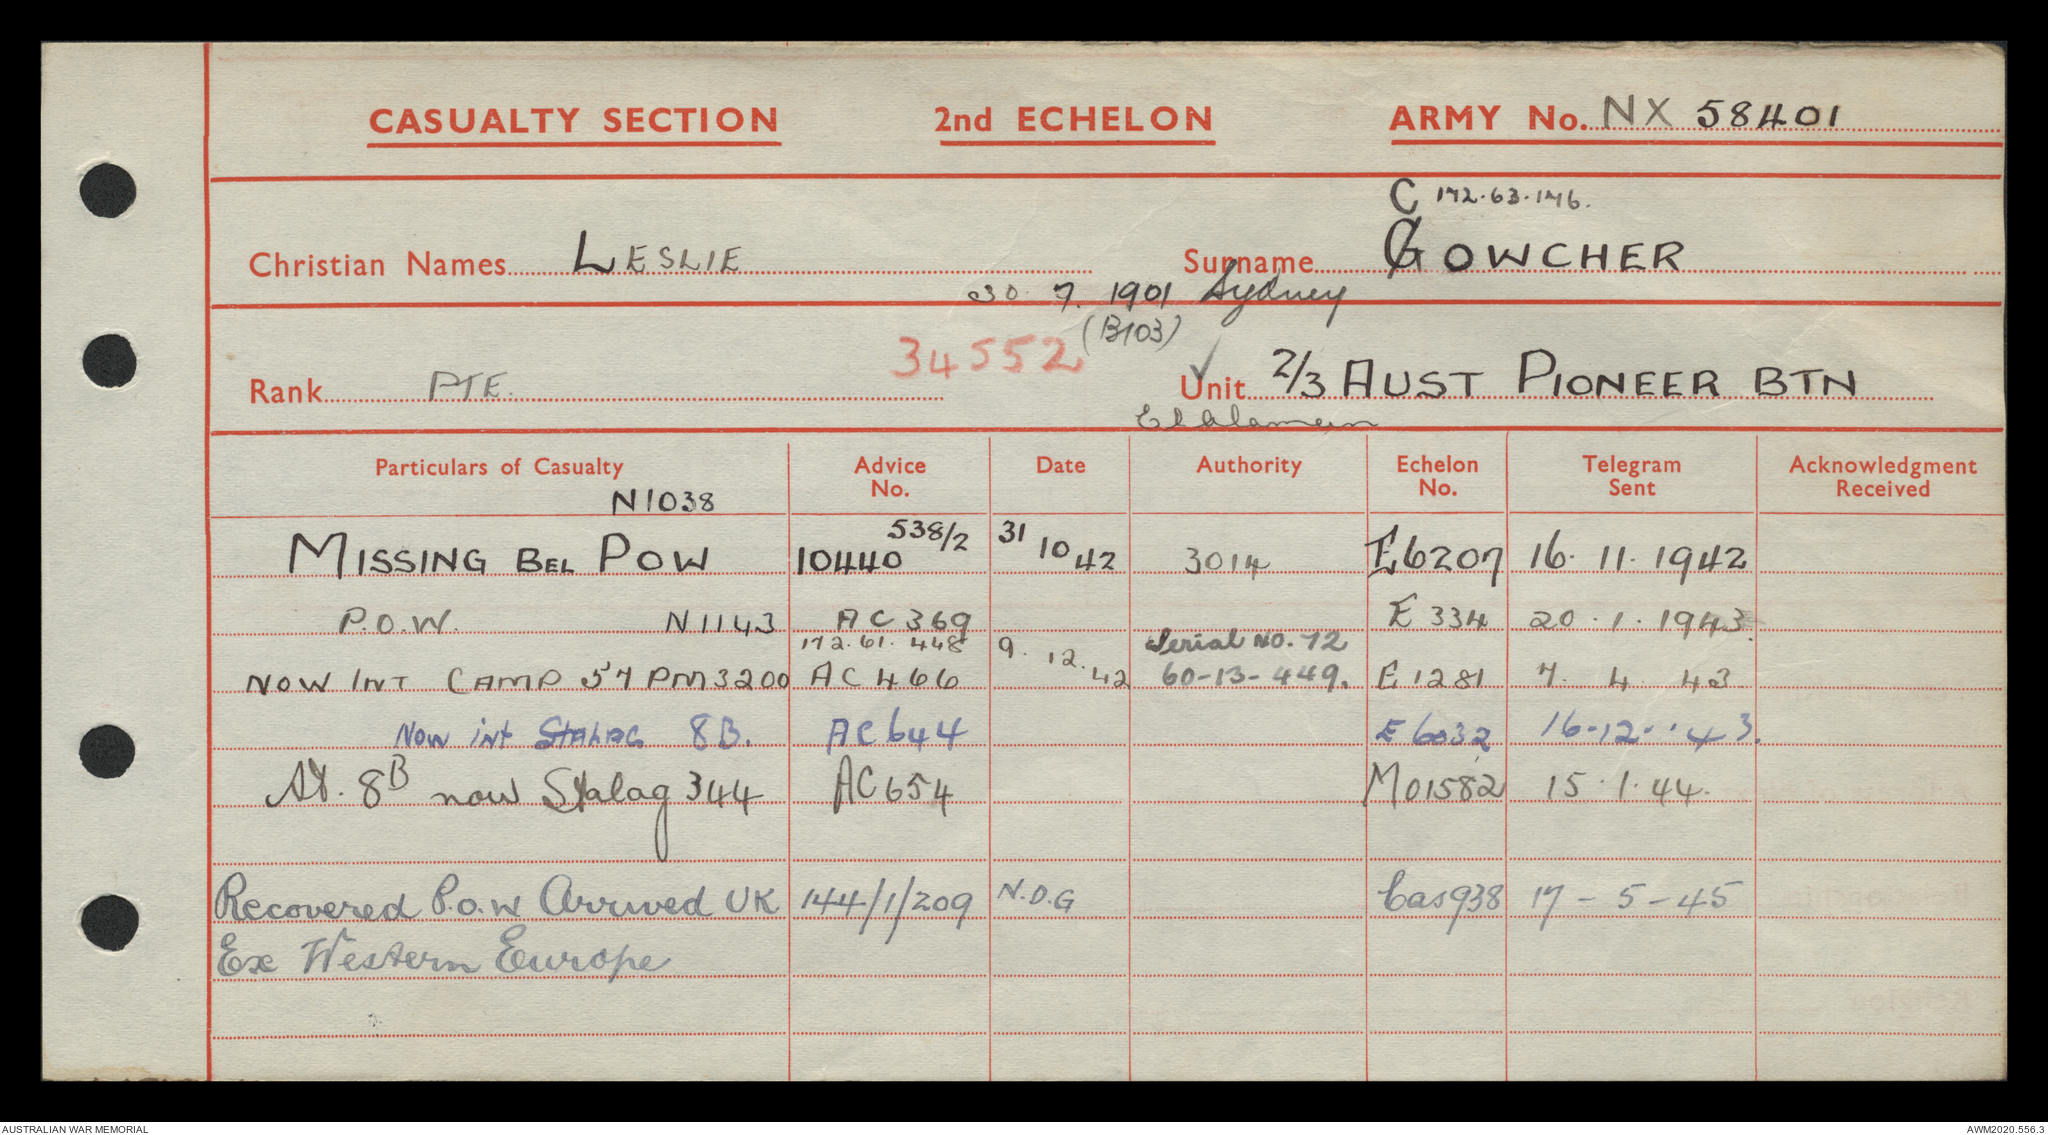 CASUALTY SECTION 2nd ECHELON ARMY No. NX 58401
C 172.63.176.
Christian Names LESLIE Surname GOWCHER
30. 7. 1901 Sydney
(B103)
34552
Rank PTE. Unit 2/3 AUST PIONEER BTN
El Alamein
Particulars of Casualty Advice No. Date Authority Echelon No. Telegram Sent Acknowledgment Received
N1038
MISSING BEL POW 10440 538/2 31 10 42 3014 E6207 16. 11. 1942
P.O.W. N1143 AC 369 E 334 20.1.1943.
172.61.448 Serial No. 72
NOW INT CAMP 57 PM3200 AC 466 9. 12. 42 60-13-449. E 1281 7. 4. 43
NOW int STALAG 8B. AC 644 E 6032 16-12-'43.
St. 8B now Stalag 344 AC 654 M01582 15.1.44.
Recovered P.O.W Arrived UK 144/1/209 N.D.G Cas938 17-5-45
Ex Western Europe
AUSTRALIAN WAR MEMORIAL AWM2020.556.3